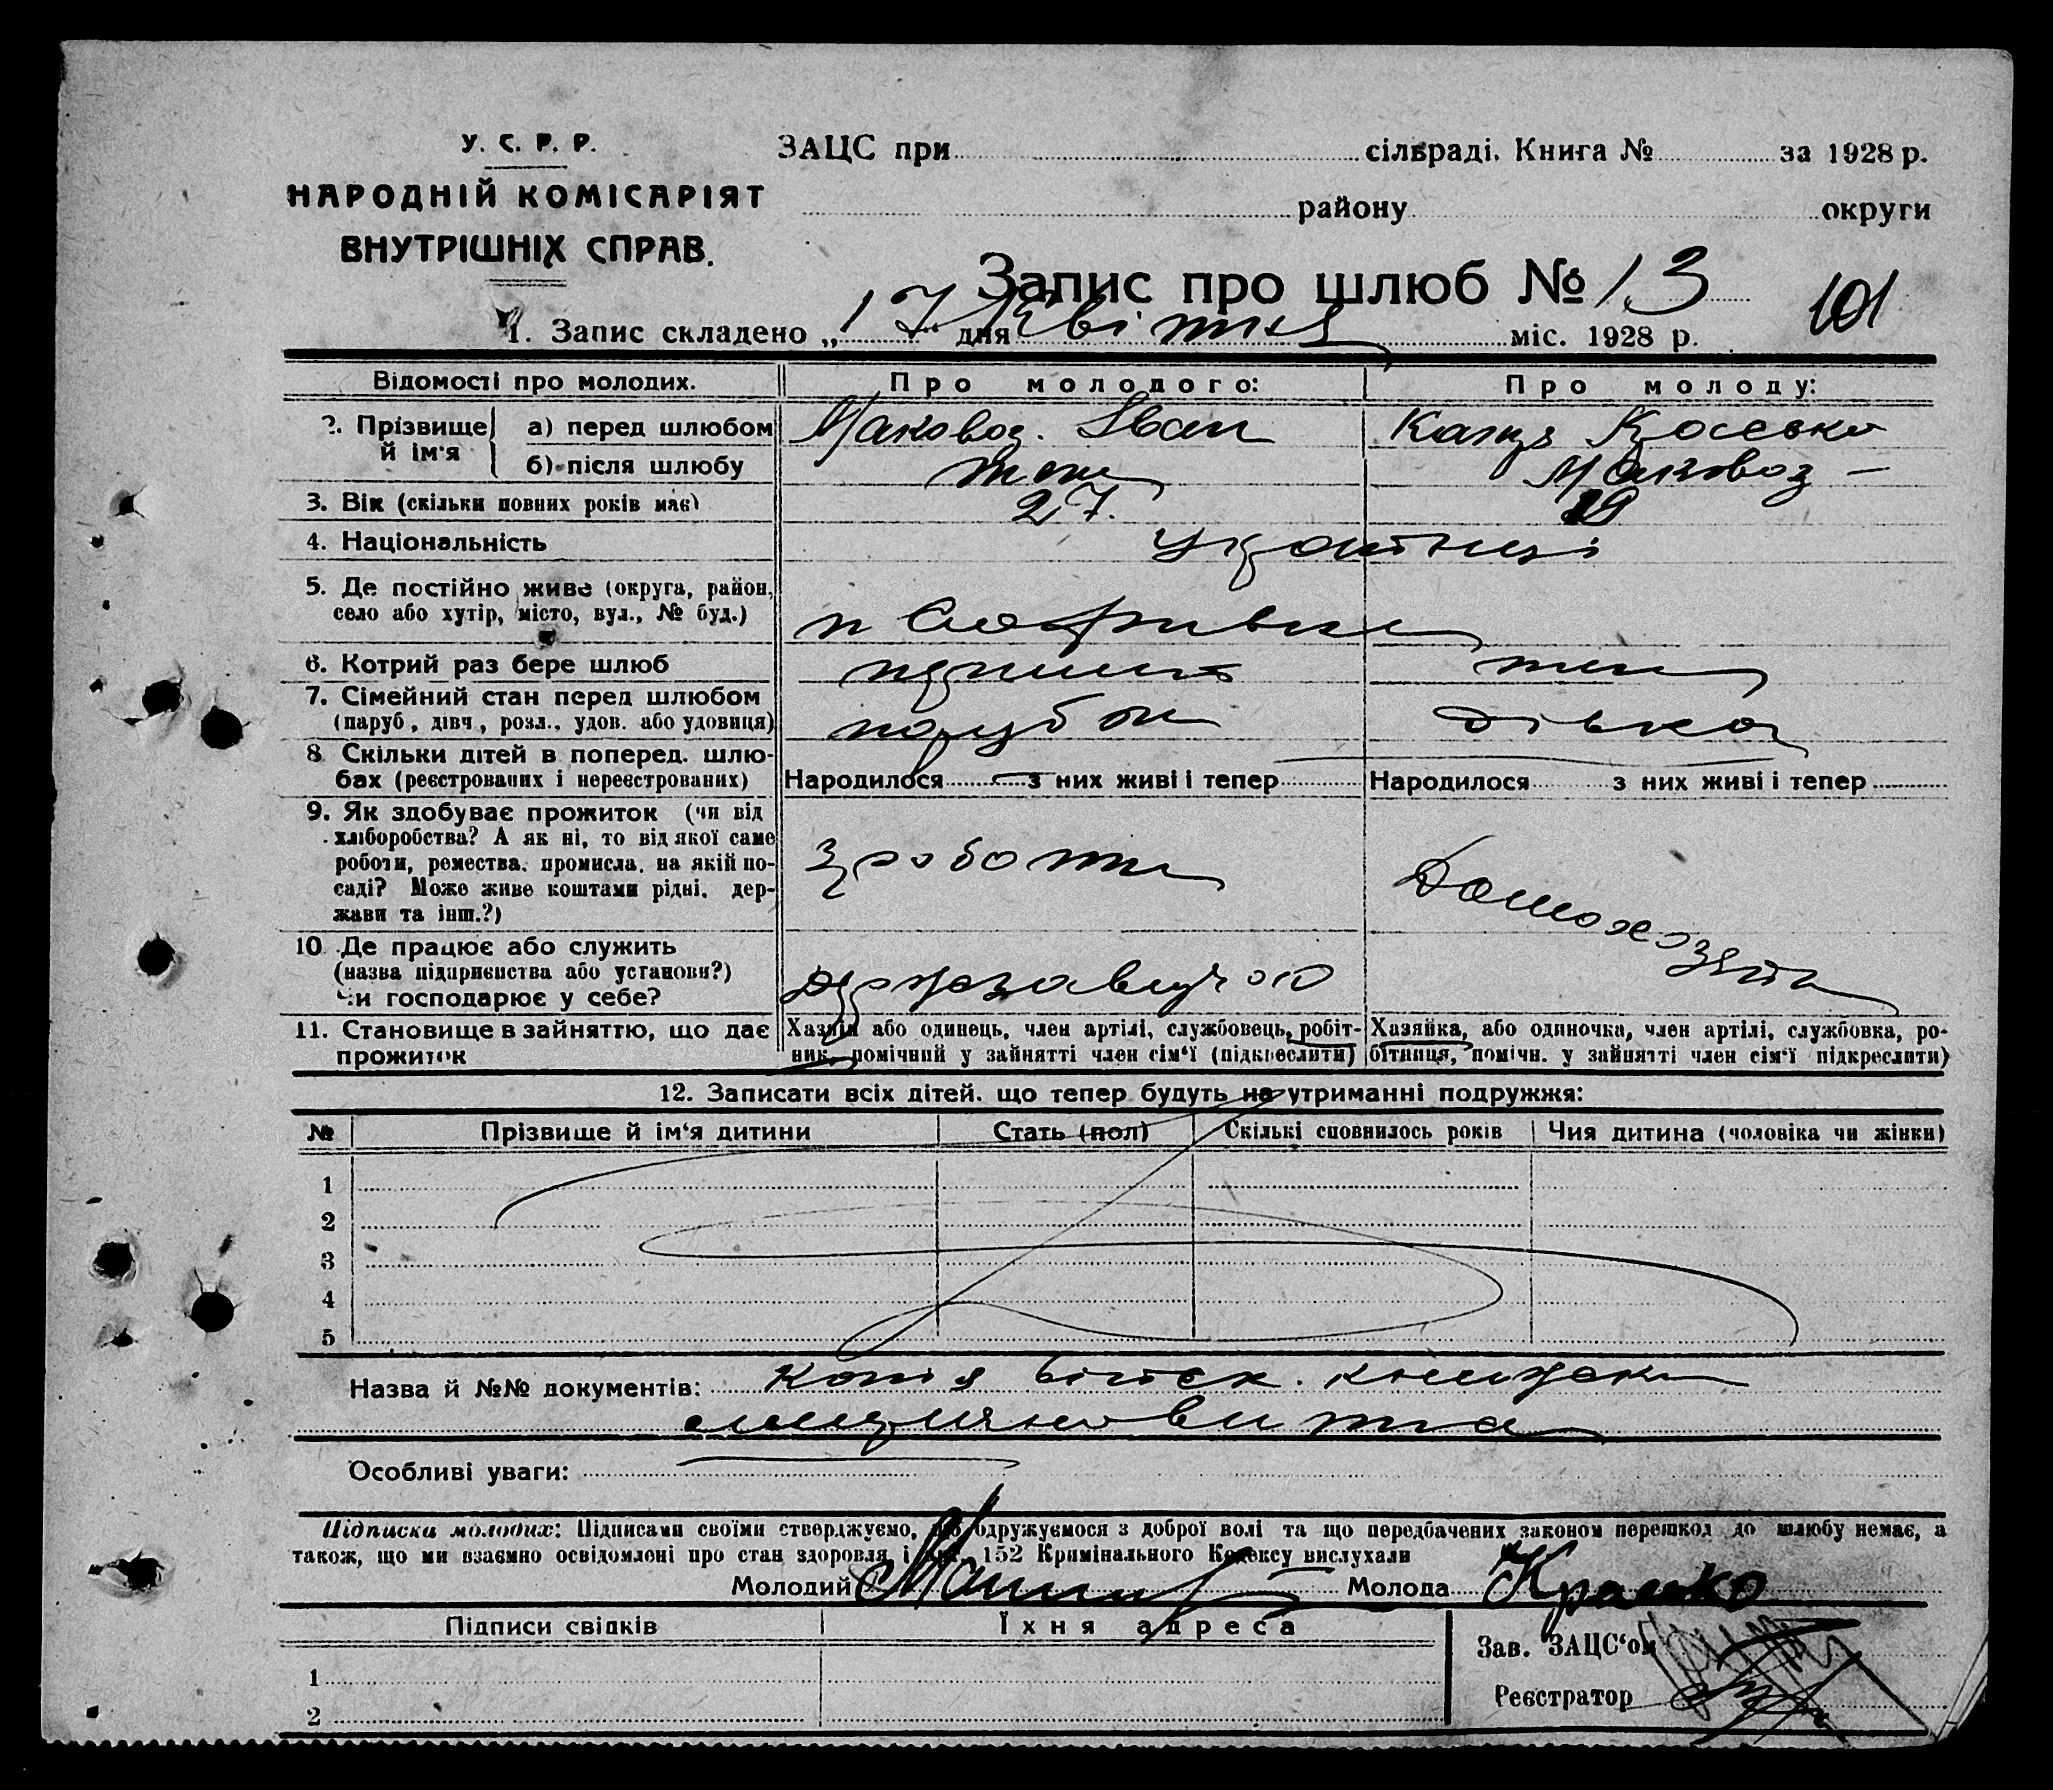 У. С. Р. Р.
НАРОДНІЙ КОМІСАРІЯТ
ВНУТРІШНІХ СПРАВ.
ЗАЦС при сільраді. Книга № за 1928 р.
району округи
Запис про шлюб № 13
101
1. Запис складено „17" дня Квітня міс. 1928 р.
Відомості про молодих. Про молодого: Про молоду:
2. Прізвище й ім'я а) перед шлюбом Маковоз. Іван Катря
б) після шлюбу Маковоз —
3. Вік (скільки повних років має) 27. 19
4. Національність українці
5. Де постійно живе (округа, район,
село або хутір, місто, вул., № буд.)
6. Котрий раз бере шлюб
7. Сімейний стан перед шлюбом
(паруб., дівч., розл., удов. або удовиця) парубок дівка
8 Скільки дітей в поперед. шлю-
бах (реєстрованих і нереєстрованих) Народилося з них живі і тепер Народилося з них живі і тепер
9. Як здобуває прожиток (чи від
хліборобства? А як ні, то від якої саме
роботи, ремества, промисла, на якій по-
саді? Може живе коштами рідні, дер-
жави та інш.?)
з роботи
Домохозяйка
10. Де працює або служить
(назва підприємства або установи?)
Чи господарює у себе?
11. Становище в зайняттю, що дає
прожиток
Хазяїн або одинець, член артілі, службовець, робіт-
ник, помічний у зайнятті член сім'ї (підкреслити)
Хазяйка, або одиночка, член артілі, службовка, ро-
бітниця, помічн. у зайнятті член сім'ї підкреслити)
12. Записати всіх дітей, що тепер будуть на утриманні подружжя:
№ Прізвище й ім'я дитини Стать (пол) Скількі сповнилось років Чия дитина (чоловіка чи жінки)
1
2
3
4
5
Назва й №№ документів: копія військ. книжки
Особливі уваги:
Підписи молодих: Підписами своїми стверджуємо, що одружуємося з доброї волі та що передбачених законом перешкод до шлюбу немає, а
також, що ми взаємно освідомлені про стан здоровля і арт. 152 Кримінального Кодексу вислухали
Молодий Молода
Підписи свідків Їхня адреса
1
2
Зав. ЗАЦС'ом
Реєстратор